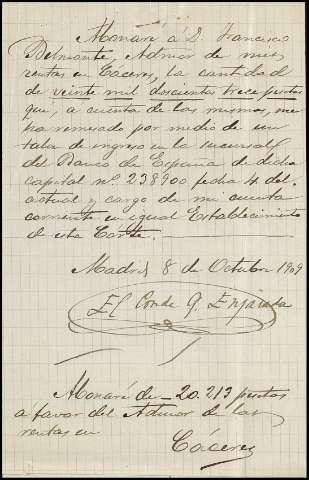 Monaré á D. Francisco
Belmonte Admor de mis
rentas en Cáceres, la cantidad
de veinte mil doscientas trece pesetas
que, á cuenta de las mismas, me
ha remesado por medio de un
talon de ingreso en la sucursal
del Banco de España de dicha
capital nº 238900 fecha 4 del
actual y cargo de mi cuenta
corriente en igual Establecimiento
de esta Corte.
Madrid 8 de Octubre 1909
El Conde q. Enjarada
Monaré de 20.213 pesetas
á favor del Admor de las
rentas en
Cáceres